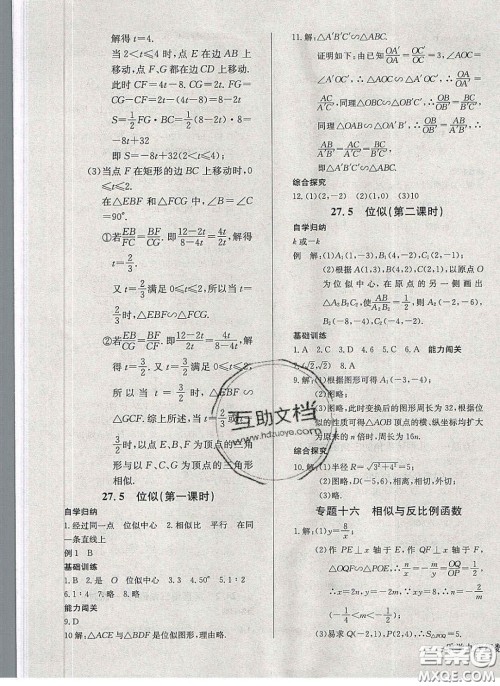 解得 t=4.
当 2<t≤4 时，点 E 在边 AB 上
移动，点 F、G 都在边 CD 上移动.
此时 CF=4t-8. CG=2t.
FG=CG-CF=2t-(4t-8)=8-2t
S=1/2 FG·BC=1/2(8-2t)·8=
-8t+32
即 S=-8t+32
(3)当点 F 在矩形的边 BC 上移动时，
0≤t≤2.
在△EBF 和△FCG 中，∠B=∠C
=90°.
①若EB/FC=BF/CG. 即(12-2t)/(8-4t)=4t/2t. 解得
t=2/3.
又 t=2/3 满足 0≤t≤2，所以当 t=
2/3 时，△EBF∽△FCG
②若EB/GC=BF/CF. 即(12-2t)/2t=4t/(8-4t). 解得
t=3/2. 又 t=3/2 满足 0≤t≤2，所以当
t=3/2 时，△EBF∽
△GCF. 综上所述，当 t=2/3 或 t=
3/2 时，以点 E、B、F 为顶点的三角
形与以 F、C、G 为顶点的三角形
相似.
27.5 位似(第一课时)
自学归纳
1.经过同一点 位似中心 2.相似比 平行 在同
一条直线上
例1 B
基础训练
1.B 2.是 O 位似中心 3.2 4.50° 5.1∶2
6.1∶4 7.略 8.略
能力闯关
9.D
10.解，△ACE与△BDF是位似图形，理由略.
11.解：△A′B′C′∽△ABC.
证明如下：由已知OA′/OA=OC′/OC=3，∠AOC
=∠A′OC′，∴△AOC∽△A′OC′，∴
A′C′/AC
，同理△OBC∽△OB′C′，∴OB′/OB=B′C′/BC
，同理△OAB∽△OA′B′，∴
∴△A′B′C′∽△ABC.
综合探究
12.(1)(2，-2) (2)略 (3)10
27.5 位似(第二课时)
自学归纳
k或-k
例 解：(1)A₁(1，-3)，B₁(4，-2)，C₁(2，-1)；
(2)根据 A(1，3)，B(4，2)，C(2，1)，以原点 O
为位似中心，在原点的另一侧画出
△A₂B₂C₂，使AB/A₂B₂=1/2，则 A₂(-2，-6)，
B₂(-8，-4)，C₂(-4，-2).
基础训练
1.A 2.C 3.D 4.6 5.A 6.C 能力闯关
7.(2，2) 8.A
9.解：(1)根据图形可得 A₁(-3，-4)；
(2)图略，此时变换后的图形周长为 32，根据位
似的性质可得△AOB 顶点的横、纵坐标均扩大
为原来的 n 倍时，图形的周长为 16n.
综合探究
10.解：(1)半径 R=√(3²+4²)=5；
(2)图略.
专题十六 相似与反比例函数
1.解：(1)y=8/x；
(2)作 PE⊥x 轴于 E，作 QF⊥x 轴于 F，
△OQF∽
(3)易求 Q(-2，2)，∴S△POQ=3.
互助文档
www.hdzuoye.com
答案圈
MXQE.COM